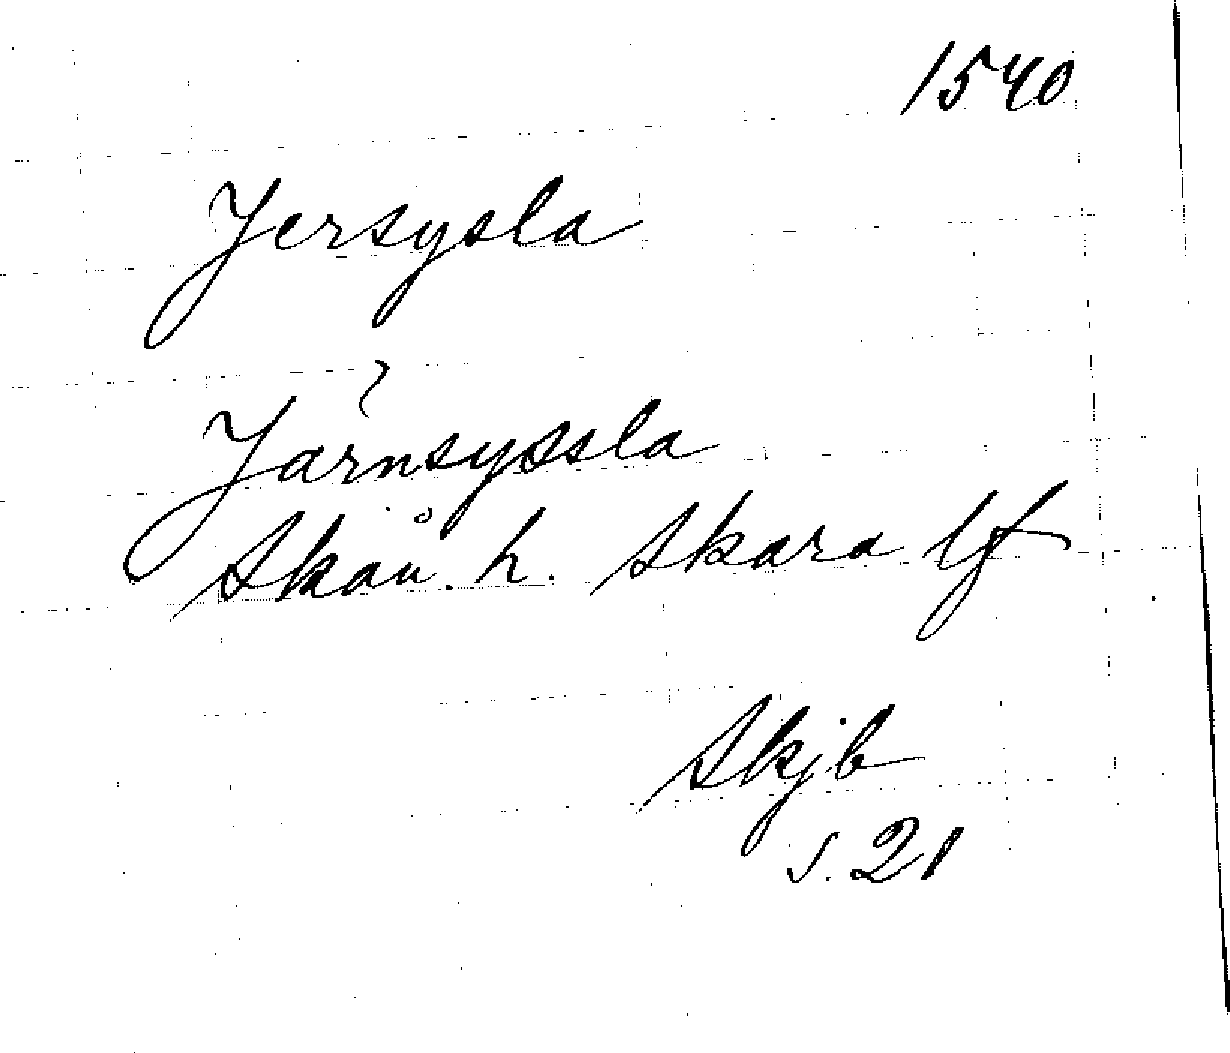 1540
Jersysla
Jarnsyssla
Skån. h. Skara lf
Skjb
s. 21